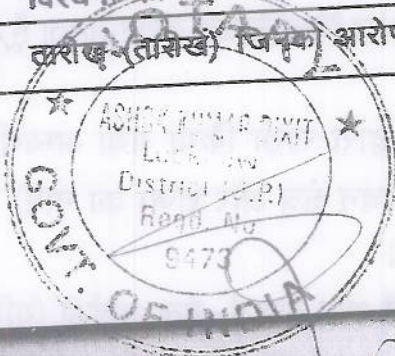 तारीख (तारीखें) जिनको आरोप
NOTARY
ASHOK KUMAR DIXIT
Lucknow
District (U.P.)
Regd. No
9473
GOVT. OF INDIA